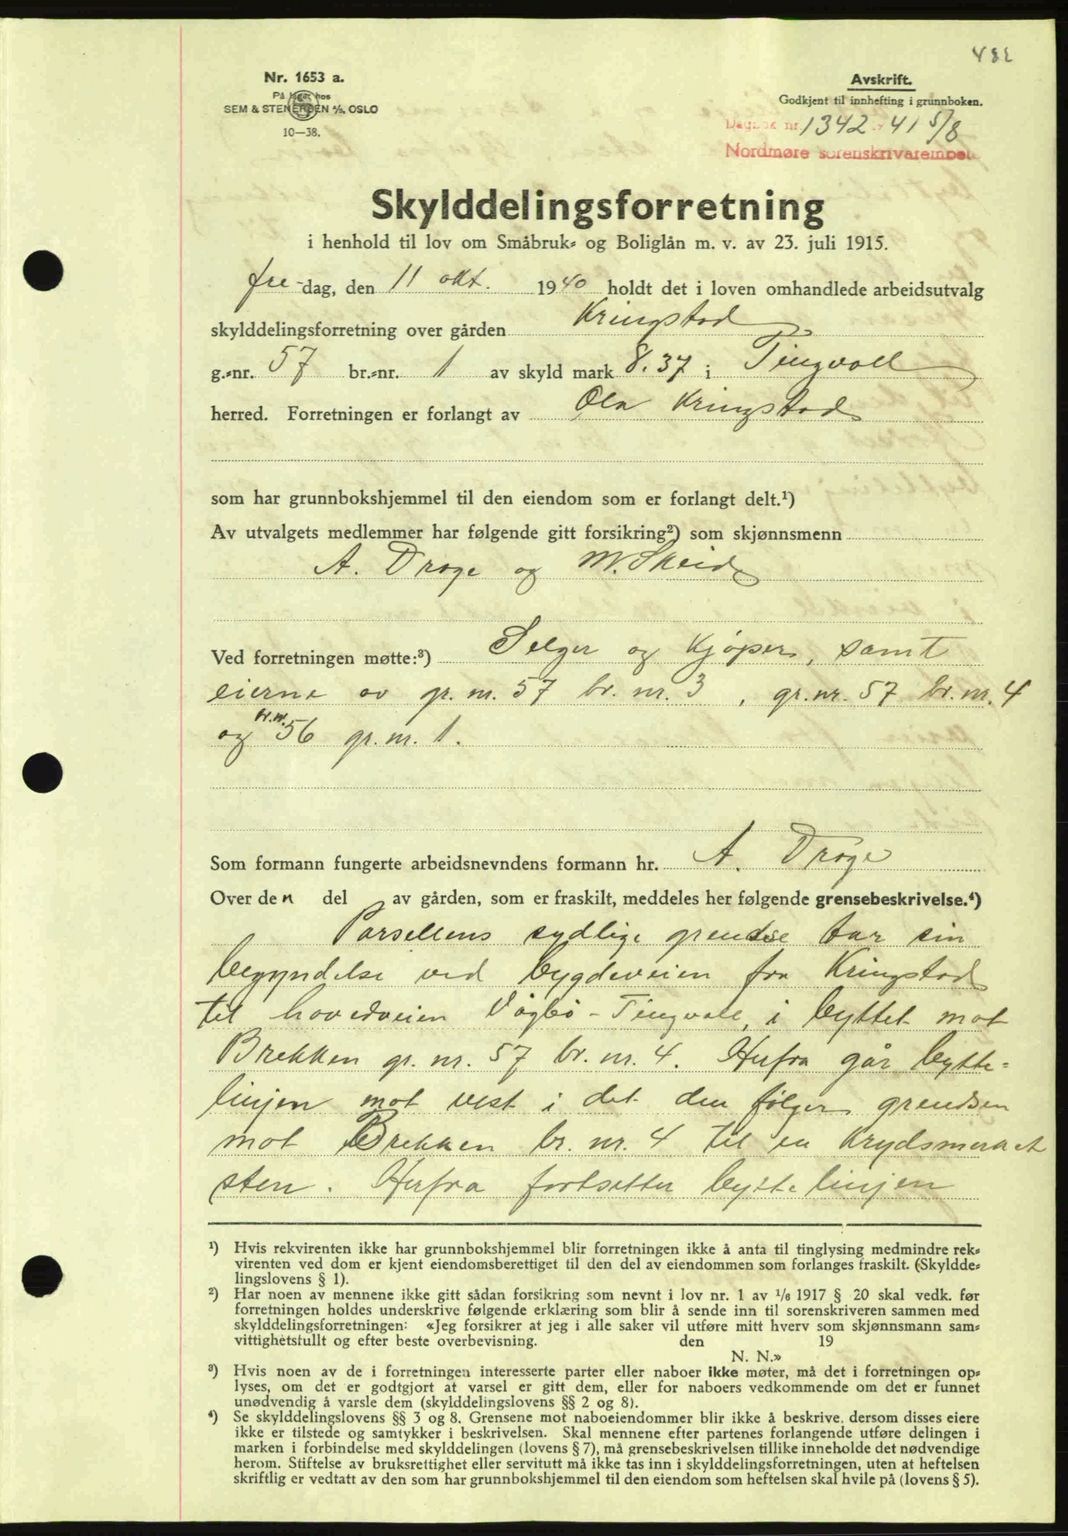 482
Nr. 1653 a.
På lager hos
SEM & STENERSEN A/S, OSLO
10-38.
Avskrift.
Godkjent til innhefting i grunnboken.
Dagbok nr. 1342 - 41 5/8
Nordmøre sorenskriverembete
Skylddelingsforretning
i henhold til lov om Småbruk- og Boliglån m. v. av 23. juli 1915.
fre-dag, den 11 okt. 1940 holdt det i loven omhandlede arbeidsutvalg
skylddelingsforretning over gården Kringstad
g.-nr. 57 br.-nr. 1 av skyld mark 8.37 i Tingvoll
herred. Forretningen er forlangt av Ola Kringstad
som har grunnbokshjemmel til den eiendom som er forlangt delt.¹)
Av utvalgets medlemmer har følgende gitt forsikring²) som skjønnsmenn
A. Drøge og M. Skeid
Ved forretningen møtte:³) Selger og kjøper, samt
eierne av gr. nr. 57 br. nr. 3, gr. nr. 57 br. nr. 4
og br. nr. 56 gr. nr. 1.
Som formann fungerte arbeidsnevndens formann hr. A. Drøge
Over den del av gården, som er fraskilt, meddeles her følgende grensebeskrivelse.⁴)
Parsellens sydlige grendse tar sin
begyndelse ved bygdeveien fra Kringstad
til hovedveien Vågbø - Tingvoll, i byttet mot
Brekken gr. nr. 57 br. nr. 4. Herfra går bytte-
linjen mot vest i det den følger grendsen
mot Brekken br. nr. 4 til en krydsmerket
sten. Herfra fortsetter byttelinjen
¹) Hvis rekvirenten ikke har grunnbokshjemmel blir forretningen ikke å anta til tinglysing medmindre rek-
virenten ved dom er kjent eiendomsberettiget til den del av eiendommen som forlanges fraskilt. (Skyldde-
lingslovens § 1).
²) Har noen av mennene ikke gitt sådan forsikring som nevnt i lov nr. 1 av 1/6 1917 § 20 skal vedk. før
forretningen holdes underskrive følgende erklæring som blir å sende inn til sorenskriveren sammen med
skylddelingsforretningen: «Jeg forsikrer at jeg i alle saker vil utføre mitt hverv som skjønnsmann sam-
vittighetsfullt og efter beste overbevisning. den 19
N. N.»
³) Hvis noen av de i forretningen interesserte parter eller naboer ikke møter, må det i forretningen op-
lyses, om det er godtgjort at varsel er gitt dem, eller for naboers vedkommende om det er funnet
unødvendig å varsle dem (skylddelingslovens §§ 2 og 8).
⁴) Se skylddelingslovens §§ 3 og 8. Grensene mot naboeiendommer blir ikke å beskrive, dersom disses eiere
ikke er tilstede og samtykker i beskrivelsen. Skal mennene efter partenes forlangende utføre delingen i
marken i forbindelse med skylddelingen (lovens § 7), må grensebeskrivelsen tillike inneholde det nødvendige
herom. Stiftelse av bruksrettighet eller servitutt må ikke tas inn i skylddelingsforretningen, uten at heftelsen
skriftlig er vedtatt av den som har grunnbokshjemmel til den eiendom som heftelsen skal hvile på (lovens § 5).